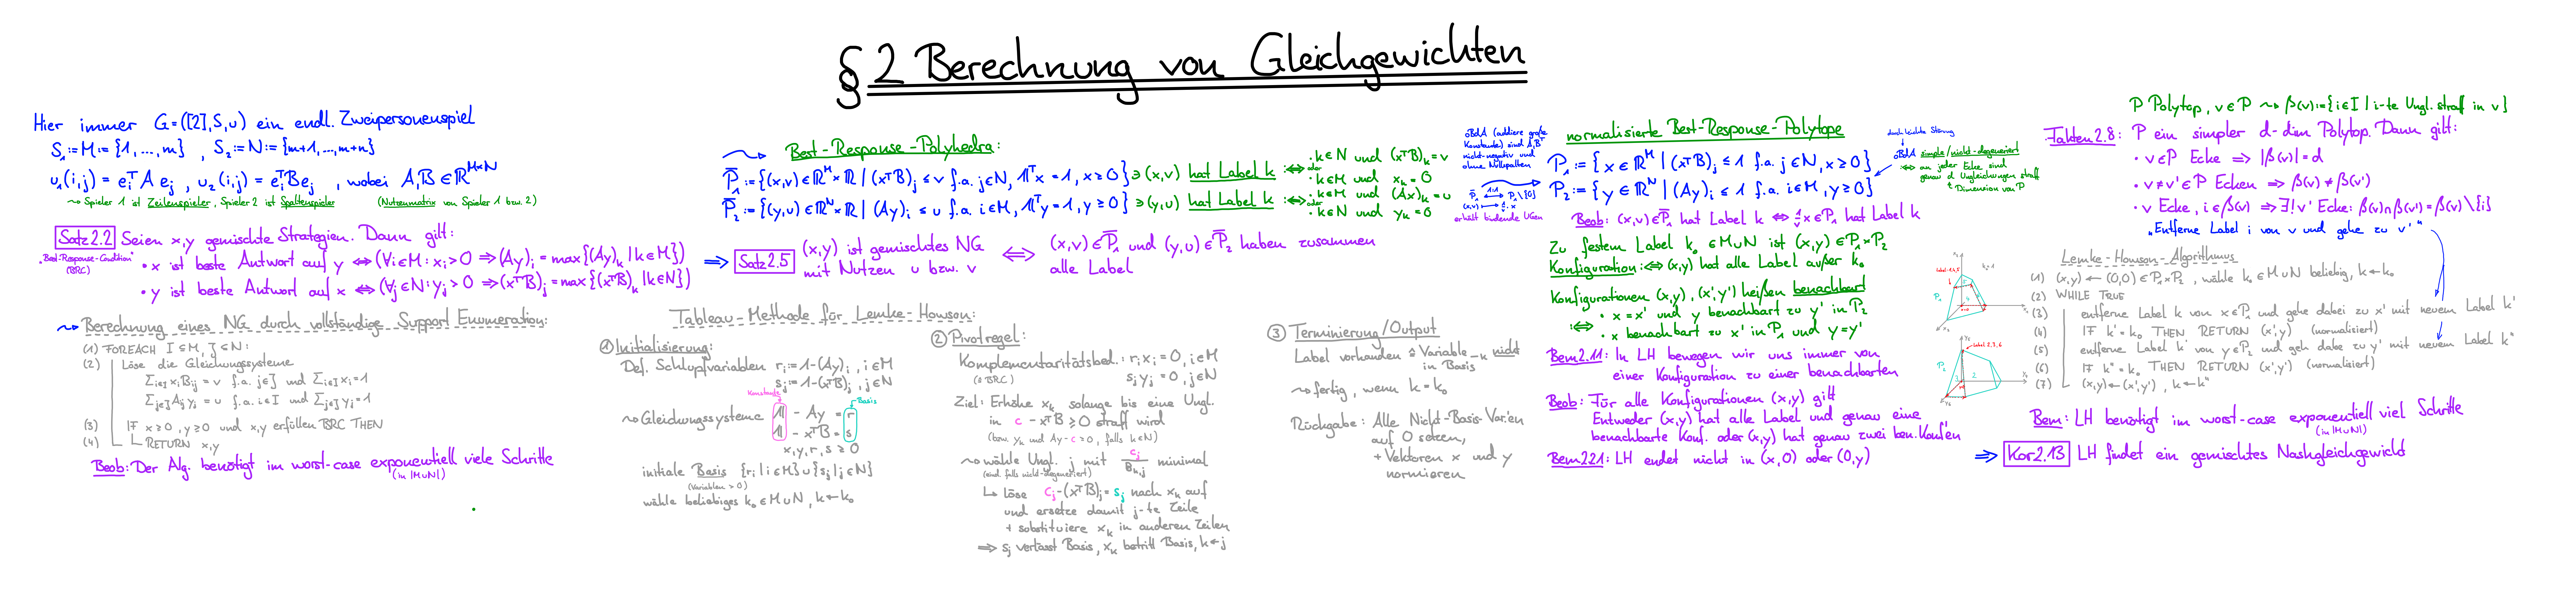 § 2 Berechnung von Gleichgewichten
Hier immer G=([2],S,u) ein endl. Zweipersonenspiel
S₁:=M:={1,...,m} , S₂:=N:={m+1,...,m+n}
u₁(i,j) = eᵢᵀA eⱼ , u₂(i,j) = eᵢᵀBeⱼ , wobei A,B ∈ ℝ^{M×N}
⤳ Spieler 1 ist Zeilenspieler, Spieler 2 ist Spaltenspieler (Nutzenmatrix von Spieler 1 bzw. 2)
Satz 2.2 Seien x,y gemischte Strategien. Dann gilt:
"Best-Response-Condition" (BRC)
• x ist beste Antwort auf y ⇔ (∀i∈M: xᵢ>0 ⇒ (Ay)ᵢ = max{(Ay)ₖ | k∈M})
• y ist beste Antwort auf x ⇔ (∀j∈N: yⱼ>0 ⇒ (xᵀB)ⱼ = max{(xᵀB)ₖ | k∈N})
⤳ Berechnung eines NG durch vollständige Support Enumeration:
(1) FOREACH I ⊆ M, J ⊆ N:
(2) Löse die Gleichungssysteme
Σ_{i∈I} xᵢBᵢⱼ = v f.a. j∈J und Σ_{i∈I} xᵢ=1
Σ_{j∈J} Aᵢⱼyⱼ = u f.a. i∈I und Σ_{j∈J} yⱼ=1
(3) IF x≥0, y≥0 und x,y erfüllen BRC THEN
(4) RETURN x,y
Beob: Der Alg. benötigt im worst-case exponentiell viele Schritte
(in |M∪N|)
Best-Response-Polyhedra:
P̄₁ := {(x,v)∈ℝ^M×ℝ | (xᵀB)ⱼ ≤ v f.a. j∈N, 𝟙ᵀx = 1, x≥0} ∋ (x,v) hat Label k :⇔ • k∈N und (xᵀB)ₖ = v
oder • k∈M und xₖ = 0
P̄₂ := {(y,u)∈ℝ^N×ℝ | (Ay)ᵢ ≤ u f.a. i∈M, 𝟙ᵀy = 1, y≥0} ∋ (y,u) hat Label k :⇔ • k∈M und (Ax)ₖ = u
oder • k∈N und yₖ = 0
⇒ Satz 2.5 (x,y) ist gemischtes NG mit Nutzen u bzw. v ⇔ (x,v)∈P̄₁ und (y,u)∈P̄₂ haben zusammen alle Label
Tableau-Methode für Lemke-Howson:
① Initialisierung:
Def. Schlupfvariablen rᵢ := 1-(Ay)ᵢ , i∈M
sⱼ := 1-(xᵀB)ⱼ , j∈N
Konstante
Basis
⤳ Gleichungssysteme 𝟙 - Ay = r
𝟙 - xᵀB = s
x,y,r,s ≥ 0
initiale Basis {rᵢ | i∈M}∪{sⱼ | j∈N}
(Variablen > 0)
wähle beliebiges k₀∈M∪N, k←k₀
② Pivotregel:
Komplementaritätsbed.: rᵢxᵢ = 0, i∈M
(≙ BRC) sⱼyⱼ = 0, j∈N
Ziel: Erhöhe xₖ solange bis eine Ungl.
in c - xᵀB ≥ 0 straff wird
(bzw. yₖ und Ay-c ≥ 0, falls k∈N)
⤳ wähle Ungl. j mit cⱼ/Bₖ,ⱼ minimal
(eind. falls nicht-degeneriert)
↳ löse cⱼ-(xᵀB)ⱼ = sⱼ nach xₖ auf
und ersetze damit j-te Zeile
+ substituiere xₖ in anderen Zeilen
⇒ sⱼ verlässt Basis, xₖ betritt Basis, k←j
③ Terminierung/Output
Label vorhanden ≙ Variable _k nicht
in Basis
⤳ fertig, wenn k = k₀
Rückgabe: Alle Nicht-Basis-Var'en
auf 0 setzen,
+ Vektoren x und y
normieren
oBdA (addiere große
Konstante) sind A,Bᵀ
nicht-negativ und
ohne Nullspalten
P̄₁ ⟷ P₁\{0}
1:1
(x,v) ⟼ 1/v · x
erhält bindende UGen
normalisierte Best-Response-Polytope
P₁ := { x∈ℝ^M | (xᵀB)ⱼ ≤ 1 f.a. j∈N, x≥0}
P₂ := { y∈ℝ^N | (Ay)ᵢ ≤ 1 f.a. i∈M, y≥0}
durch leichte Störung
oBdA simple/nicht-degeneriert
⇔ an jeder Ecke sind
genau d Ungleichungen straff
↑ Dimension von P
Beob: (x,v)∈P̄₁ hat Label k ⇔ 1/v x∈P₁ hat Label k
Zu festem Label k₀∈M∪N ist (x,y)∈P₁×P₂
Konfiguration :⇔ (x,y) hat alle Label außer k₀
Konfigurationen (x,y), (x',y') heißen benachbart
:⇔ • x = x' und y benachbart zu y' in P₂
• x benachbart zu x' in P₁ und y=y'
Bem 2.11: In LH bewegen wir uns immer von
einer Konfiguration zu einer benachbarten
Beob: Für alle Konfigurationen (x,y) gilt
Entweder (x,y) hat alle Label und genau eine
benachbarte Konf. oder (x,y) hat genau zwei ben. Konf'en
Bem 221: LH endet nicht in (x,0) oder (0,y)
P Polytop, v∈P ⤳ β(v):={i∈I | i-te Ungl. straff in v}
Fakten 2.8: P ein simpler d-dim Polytop. Dann gilt:
• v∈P Ecke ⇒ |β(v)| = d
• v≠v'∈P Ecken ⇒ β(v) ≠ β(v')
• v Ecke, i∈β(v) ⇒ ∃! v' Ecke: β(v)∩β(v') = β(v)\{i}
"Entferne Label i von v und gehe zu v'"
Lemke-Howson-Algorithmus
(1) (x,y) ← (0,0)∈P₁×P₂ , wähle k₀∈M∪N beliebig, k←k₀
(2) WHILE TRUE
(3) entferne Label k von x∈P₁ und gehe dabei zu x' mit neuem Label k'
(4) IF k'=k₀ THEN RETURN (x',y) (normalisiert)
(5) entferne Label k' von y∈P₂ und geh dabei zu y' mit neuem Label k''
(6) IF k''=k₀ THEN RETURN (x',y') (normalisiert)
(7) (x,y)←(x',y') , k←k''
Bem: LH benötigt im worst-case exponentiell viel Schritte
(in |M∪N|)
⇒ Kor 2.13 LH findet ein gemischtes Nashgleichgewicht